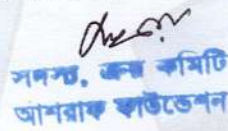 সদস্য, ক্রয় কমিটি
আশরাফ ফাউন্ডেশন